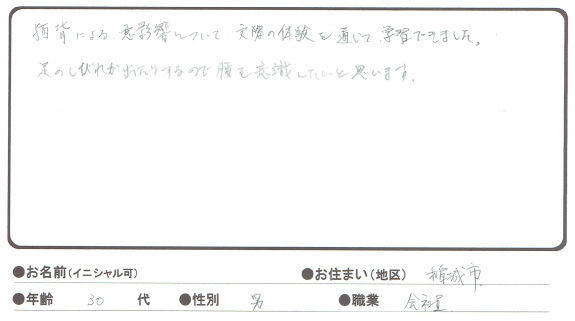 猫背による悪影響について実際の体験を通じて学習できました。
足のしびれが出たりするので腰を意識したいと思います。
●お名前(イニシャル可) ●お住まい(地区) 稲城市
●年齢 30 代 ●性別 男 ●職業 会社員